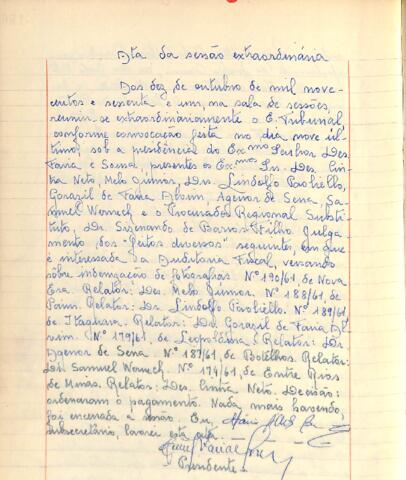 Ata da sessão extraordinária
Aos dez de outubro de mil nove-
centos e sessenta e um, na sala de sessões,
reuniu-se extraordinariamente o E. Tribunal
conforme convocação feita no dia nove úl-
timo, sob a presidência do Exmo Senhor Des.
Faria e Sousa, presentes os Exmos Srs. Des. Cin-
tra Neto, Melo Júnior, Drs. Lindolfo Paoliello,
Gorazil de Faria Alvim, Agenor de Sena, Sa-
muel Werneck e o Procurador Regional Substi-
tuto, Dr. Sizenando de Barros Filho. Julga-
mento dos "Feitos diversos" seguintes, em que
é interessada da Auditoria Fiscal, versando
sobre indenização de fotografias: Nº 190/61, de Nova
Era. Relator: Des. Melo Júnior. Nº 188/61, de
Pains. Relator: Dr. Lindolfo Paoliello. Nº 189/61,
de Itaguara. Relator: Dr. Gorazil de Faria Al-
vim. Nº 179/61, de Leopoldina. Relator: Dr.
Agenor de Sena. Nº 187/61, de Botelhos. Relator:
Dr. Samuel Werneck. Nº 174/61, de Entre Rios
de Minas. Relator: Des. Cintra Neto. Decisão:
ordenaram o pagamento. Nada mais havendo,
foi encerrada a sessão. Eu,
Subsecretário, lavrei esta ata.
Presidente